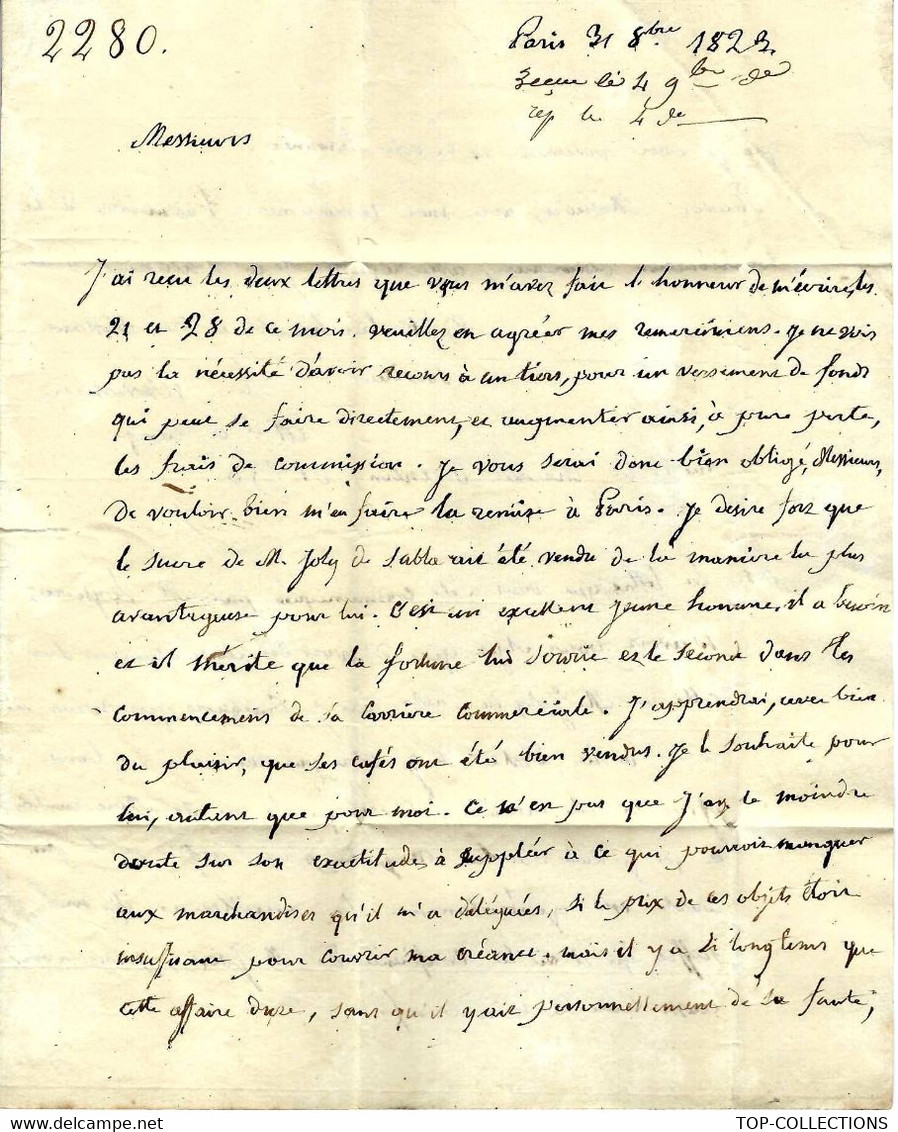 2280.
Paris 31 8bre 1823
reçue le 4 9bre de
rep le 4 de
Messieurs
J'ai reçu les deux lettres que vous m'avez fait l'honneur de m'écrire, les
21 et 28 de ce mois. veuillez en agréer mes remerciemens. Je ne vois
pas la nécessité d'avoir recours à un tiers, pour un versement de fonds
qui peut se faire directement, et augmenter ainsi, à pure perte,
les frais de commission. Je vous serai donc bien obligé, Messieurs,
de vouloir bien m'en faire la remise à Paris. Je desire fort que
le sucre de M. Joly de Sabla ait été vendu de la manière la plus
avantageuse pour lui. C'est un excellent jeune homme, il a besoin
et il mérite que la fortune lui sourie et le seconde dans les
commencemens de sa carrière commerciale. J'apprendrai, avec bien
du plaisir, que ses cafés ont été bien vendus. Je le souhaite pour
lui, autant que pour moi. Ce n'est pas que j'aye le moindre
doute sur son exactitude à suppléer à ce qui pourroit manquer
aux marchandises qu'il m'a déléguées, si le prix de ces objets étoit
insuffisant pour couvrir ma créance. mais il y a si longtems que
cette affaire dure, sans qu'il y ait personnellement de sa faute,
TOP-COLLECTIONS